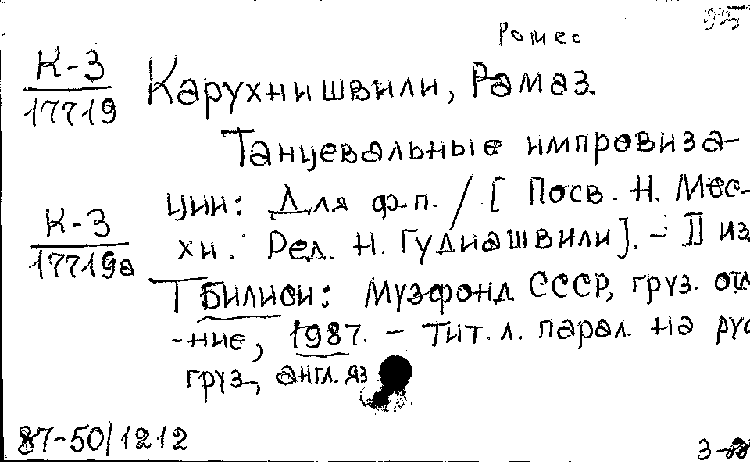 Ромес
95
К-3
17719
Карухнишвили, Рамаз.
Танцевальные импровиза-
ции: Для ф-п. / [ Посв. Н. Мес-
К-3
17719а
хи. Ред. Н. Гудиашвили]. - II из
Тбилиси: Музфонд СССР, груз. отд
-ние, 1987. - Тит. л. парал. на рус
груз., англ. яз
87-50/1212